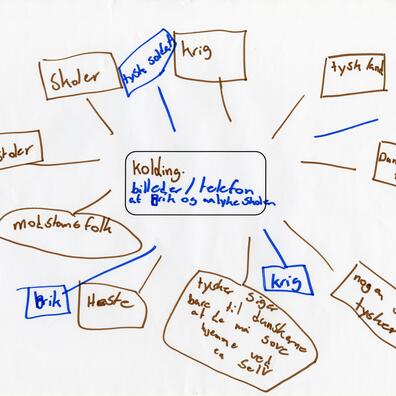 Skoler
tysk soldat
krig
tysk land
Dan
Kolding.
billeder / telefon
af Brik og
modstans folk
Brik
Heste
krig
tysker siger
bare til danskerne
at de må sove
hjemme ved
selv
nogen
tysker